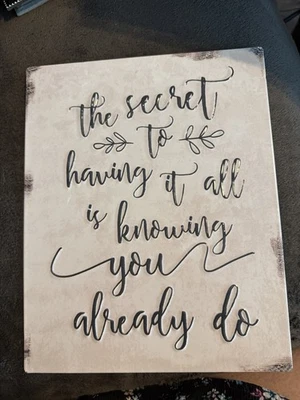 the secret
to
having it all
is knowing
you
already do